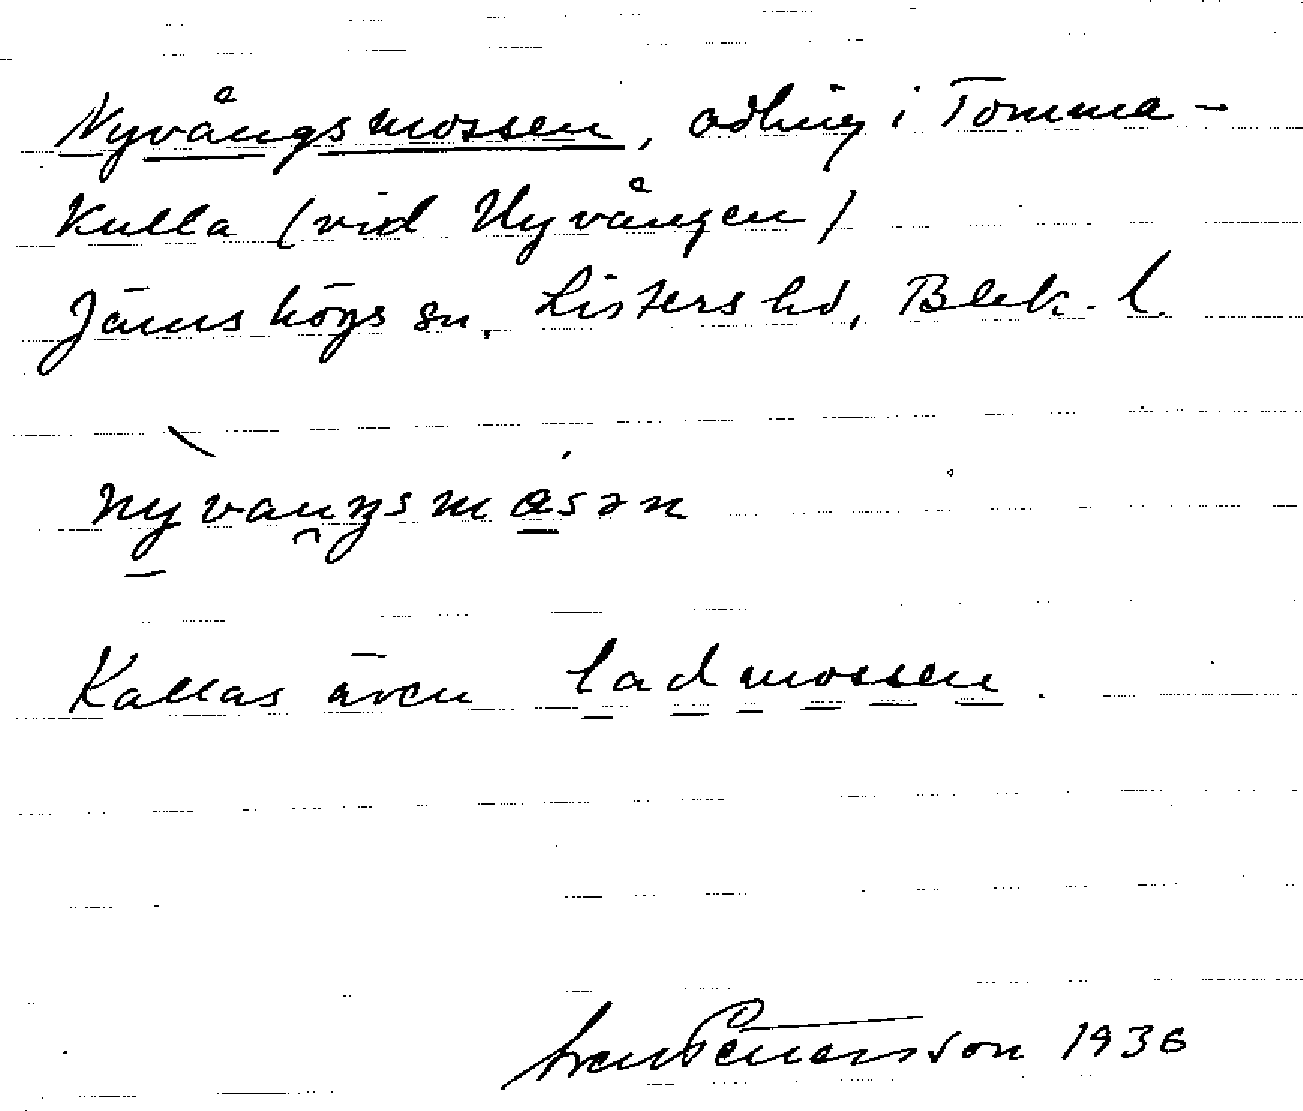 Nyvångsmossen, odling i Tomma-
kulla (vid Nyvången)
Jämshögs sn. Listers hd, Blek. l.
nỳvaŋsmåsən
Kallas även ladmossen.
Sven Petersson 1936